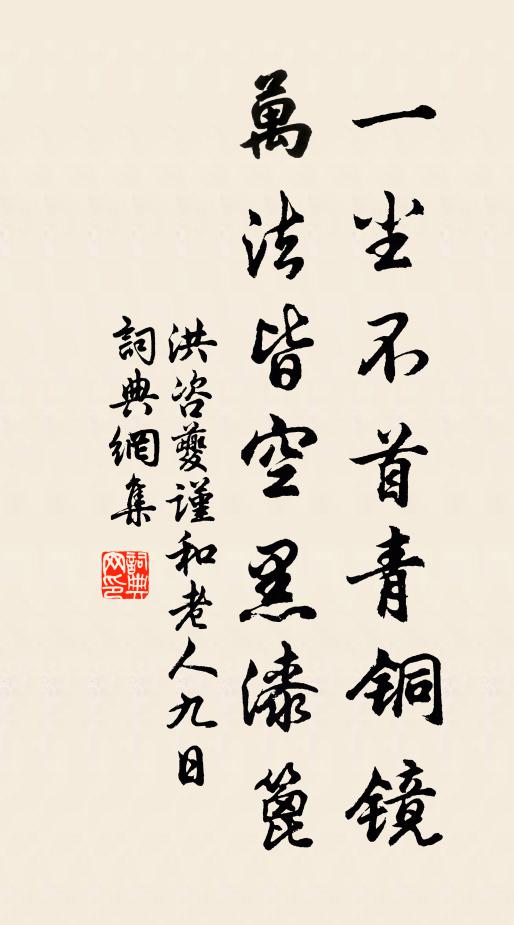 一尘不首青铜镜
萬法皆空黑漆篦
洪咨夔谨和老人九日
詞典網集
詞典網印